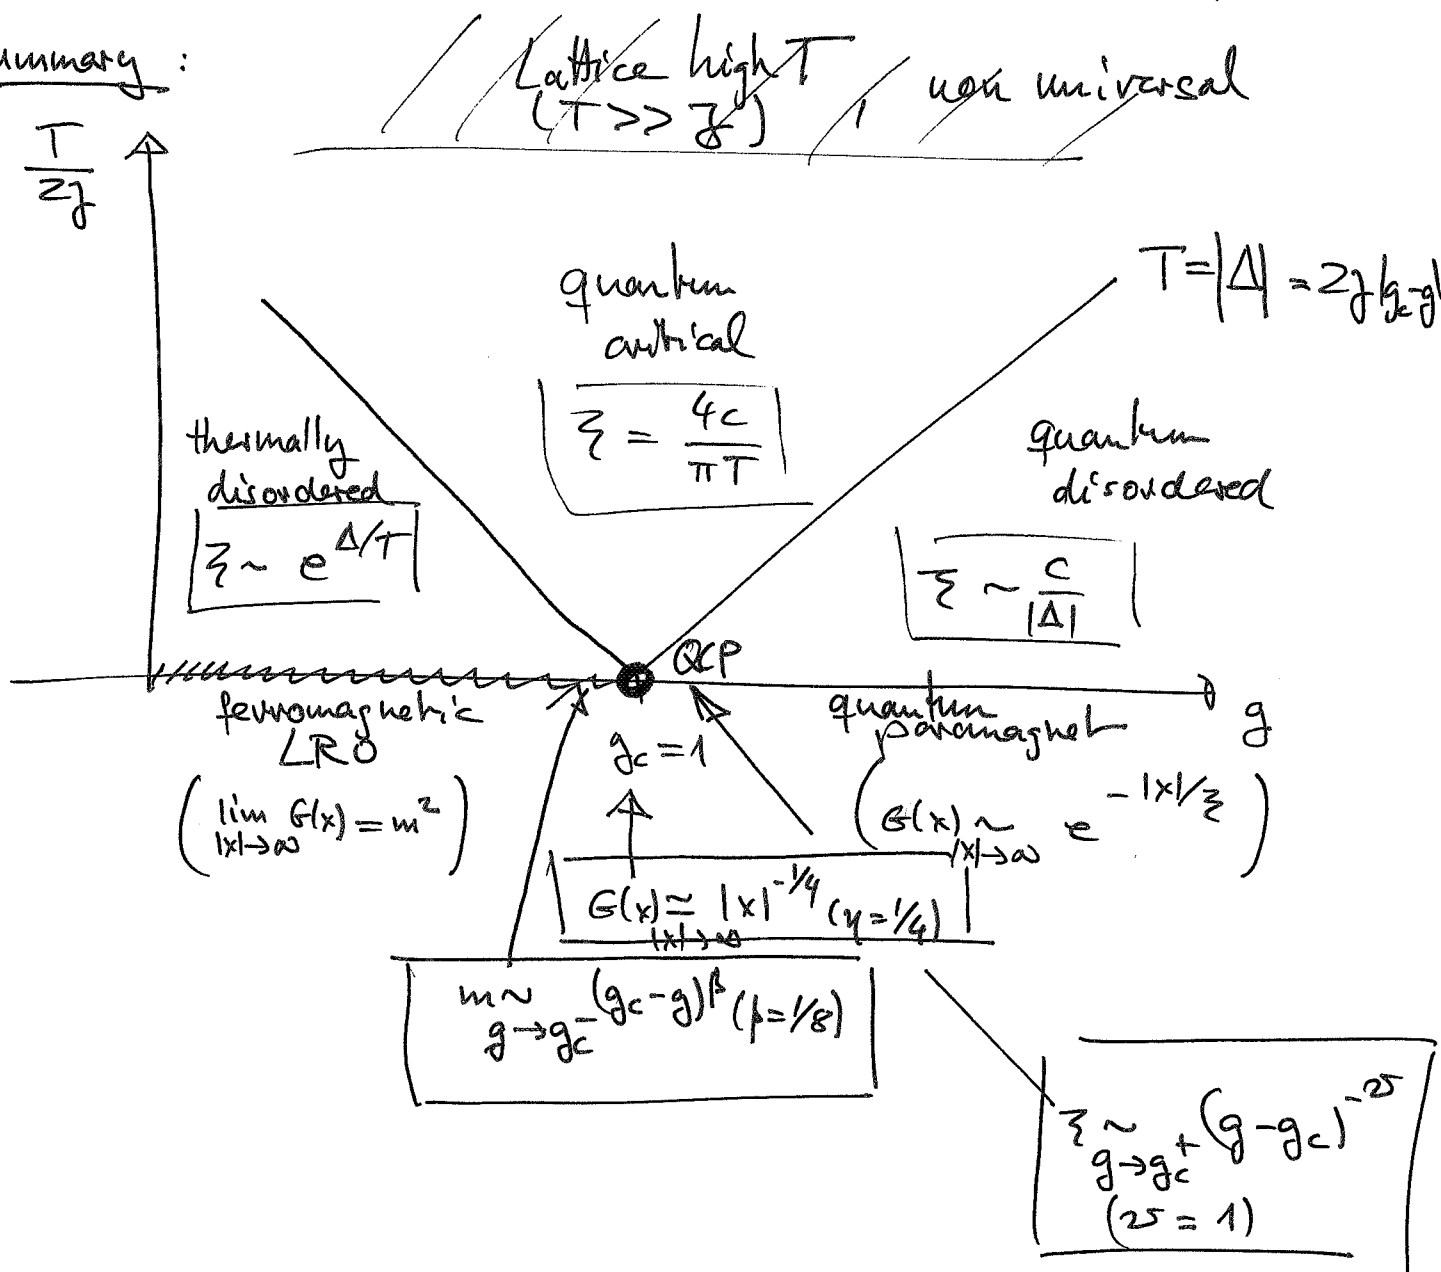 ummary :
Lattice high T , non universal
(T >> J)
T/2J
T = |Δ| = 2J|g_c-g|
quantum
critical
ξ = 4c/πT
thermally
disordered
ξ ~ e^{Δ/T}
quantum
disordered
ξ ~ c/|Δ|
QCP
ferromagnetic
LRO
(lim_{|x|→∞} G(x) = m²)
g_c = 1
quantum
paramagnet
g
(G(x) ~_{|x|→∞} e^{-|x|/ξ})
G(x) ≃_{|x|→∞} |x|^{-1/4} (η = 1/4)
m ~_{g→g_c^-} (g_c - g)^β (β = 1/8)
ξ ~_{g→g_c^+} (g - g_c)^{-ν}
(ν = 1)